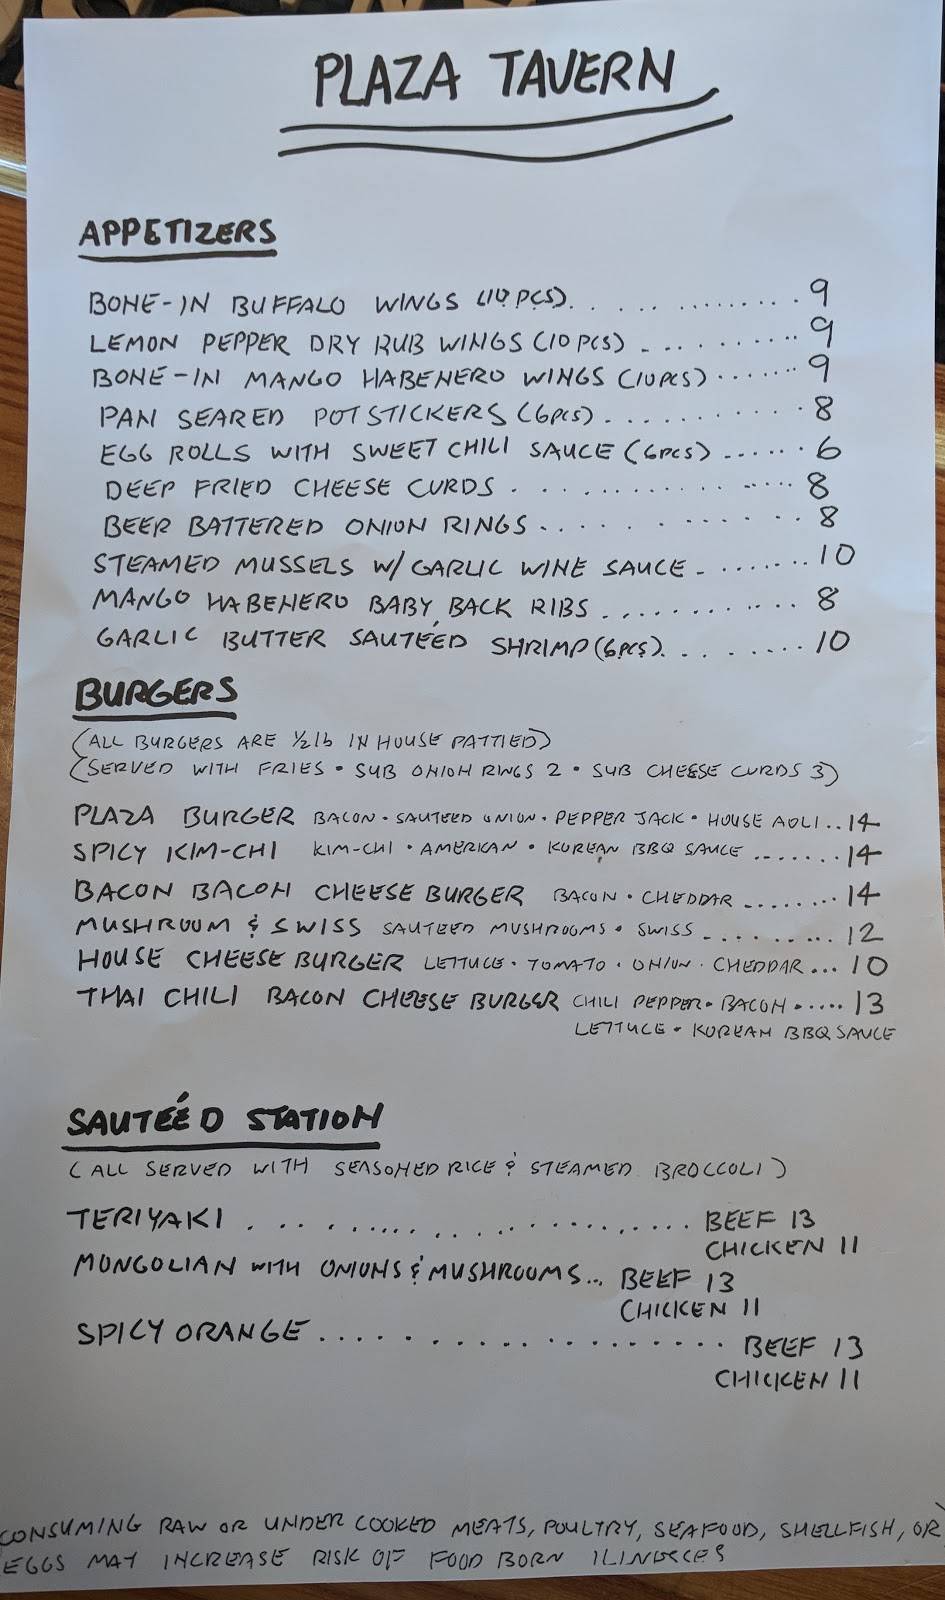 PLAZA TAVERN
APPETIZERS
BONE-IN BUFFALO WINGS (10 PCS). . . . . . . . . . . . . 9
LEMON PEPPER DRY RUB WINGS (10 PCS) . . . . . . . . . 9
BONE-IN MANGO HABENERO WINGS (10 PCS) . . . . . . . 9
PAN SEARED POTSTICKERS (6PCS). . . . . . . . . . . . 8
EGG ROLLS WITH SWEET CHILI SAUCE (6PCS) . . . . . . 6
DEEP FRIED CHEESE CURDS . . . . . . . . . . . . . . . 8
BEER BATTERED ONION RINGS . . . . . . . . . . . . . 8
STEAMED MUSSELS W/ GARLIC WINE SAUCE . . . . . . . . 10
MANGO HABENERO BABY BACK RIBS . . . . . . . . . . . 8
GARLIC BUTTER SAUTÉED SHRIMP (6PCS). . . . . . . . . 10
BURGERS
(ALL BURGERS ARE ½ lb IN HOUSE PATTIED)
(SERVED WITH FRIES • SUB ONION RINGS 2 • SUB CHEESE CURDS 3)
PLAZA BURGER BACON • SAUTEED ONION • PEPPER JACK • HOUSE AOLI . . 14
SPICY KIM-CHI KIM-CHI • AMERICAN • KOREAN BBQ SAUCE . . . . . . . . 14
BACON BACON CHEESE BURGER BACON • CHEDDAR . . . . . . . . 14
MUSHROOM & SWISS SAUTEED MUSHROOMS • SWISS . . . . . . . . . 12
HOUSE CHEESE BURGER LETTUCE • TOMATO • ONION • CHEDDAR . . . 10
THAI CHILI BACON CHEESE BURGER CHILI PEPPER • BACON • . . . . . 13
LETTUCE • KOREAN BBQ SAUCE
SAUTEÉD STATION
(ALL SERVED WITH SEASONED RICE & STEAMED BROCCOLI)
TERIYAKI . . . . . . . . . . . . . . . . . . . . . . . BEEF 13
CHICKEN 11
MONGOLIAN WITH ONIONS & MUSHROOMS . . . BEEF 13
CHICKEN 11
SPICY ORANGE . . . . . . . . . . . . . . . . . . . . . BEEF 13
CHICKEN 11
CONSUMING RAW OR UNDER COOKED MEATS, POULTRY, SEAFOOD, SHELLFISH, OR
EGGS MAY INCREASE RISK OF FOOD BORN